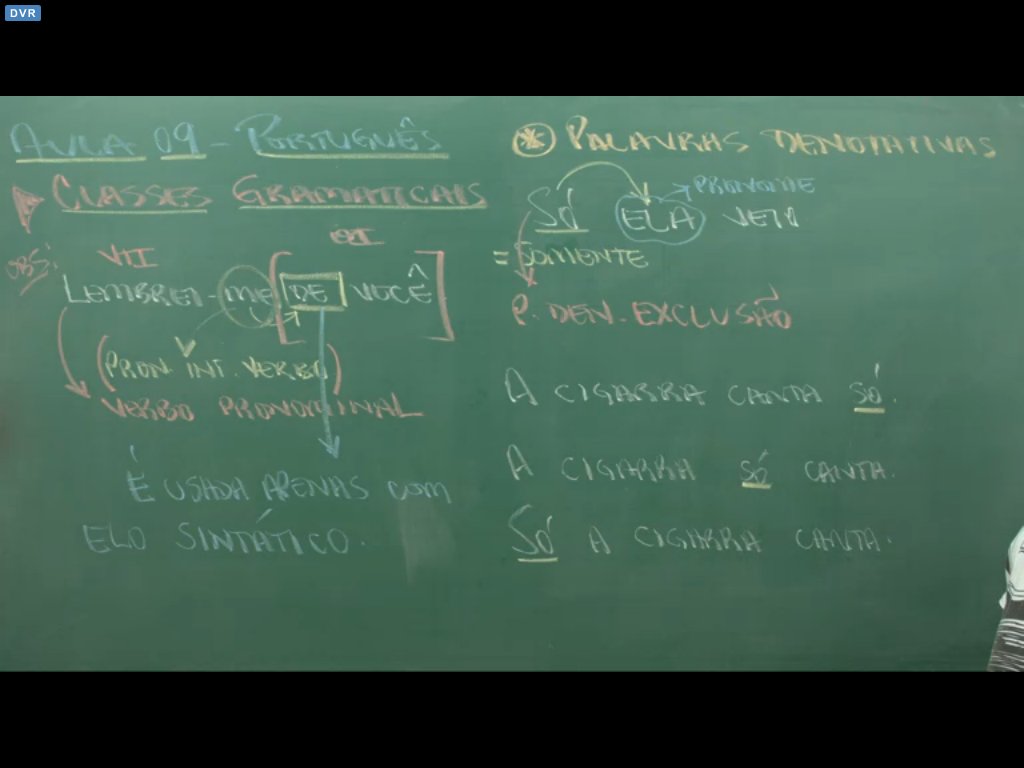 DVR
AULA 09 - PORTUGUÊS
CLASSES GRAMATICAIS
OBS:
VTI
OI
LEMBREI-ME DE VOCÊ
(PRON. INT. VERBO)
VERBO PRONOMINAL
É USADA APENAS COM
ELO SINTÁTICO.
* PALAVRAS DENOTATIVAS
PRONOME
SÓ ELA VEIO.
= SOMENTE
P. DEN. EXCLUSÃO
A CIGARRA CANTA SÓ.
A CIGARRA SÓ CANTA.
SÓ A CIGARRA CANTA.